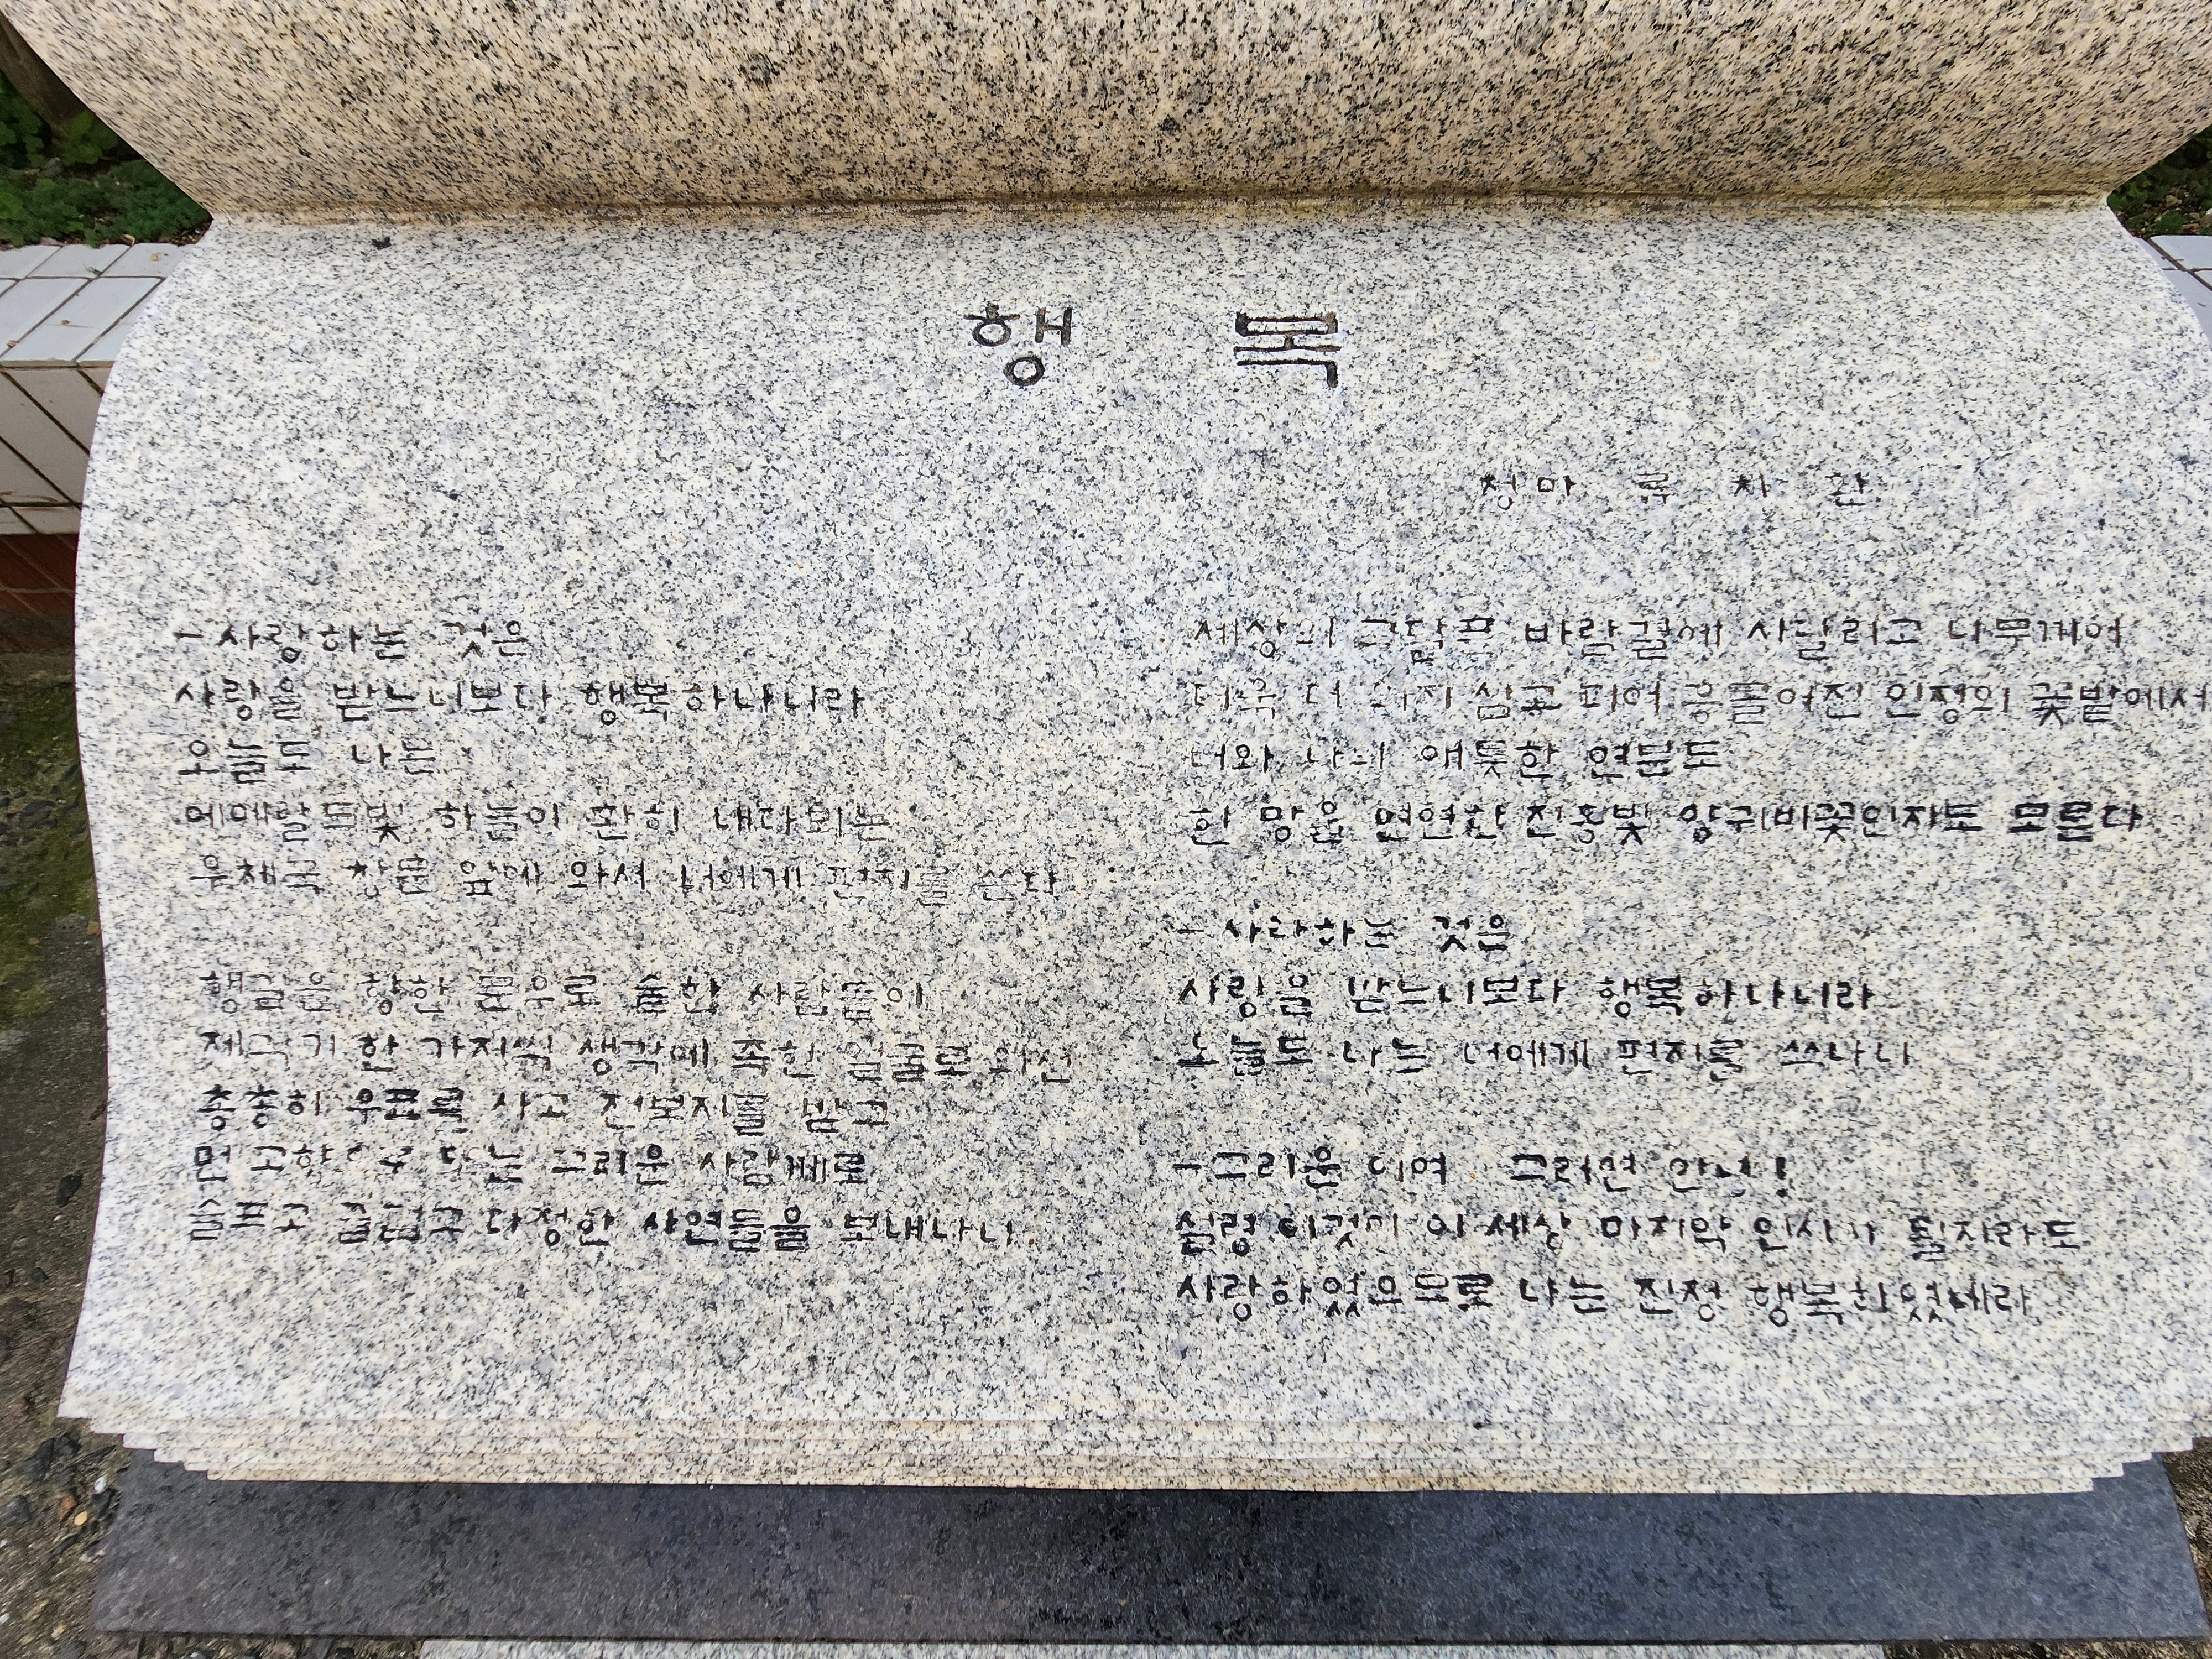 행 복
청마 류 치 환
-사랑하는 것은
사랑을 받느니보다 행복하나니라
오늘도 나는
에메랄드빛 하늘이 환히 내다뵈는
우체국 창문 앞에 와서 너에게 편지를 쓴다
행길을 향한 문으로 숱한 사람들이
제각기 한 가지씩 생각에 족한 얼굴로 와선
총총히 우표를 사고 전보지를 받고
먼 고향으로 또는 그리운 사람께로
슬프고 즐겁고 다정한 사연들을 보내나니
세상의 고달픈 바람결에 시달리고 나부끼어
더욱 더 의지 삼고 피어 흥클어진 인정의 꽃밭에서
너와 나의 애틋한 연분도
한 망울 연연한 진홍빛 양귀비꽃인지도 모른다
-사랑하는 것은
사랑을 받느니보다 행복하나니라
오늘도 나는 너에게 편지를 쓰나니
-그리운 이여 그러면 안녕!
설령 이것이 이 세상 마지막 인사가 될지라도
사랑하였으므로 나는 진정 행복하였네라